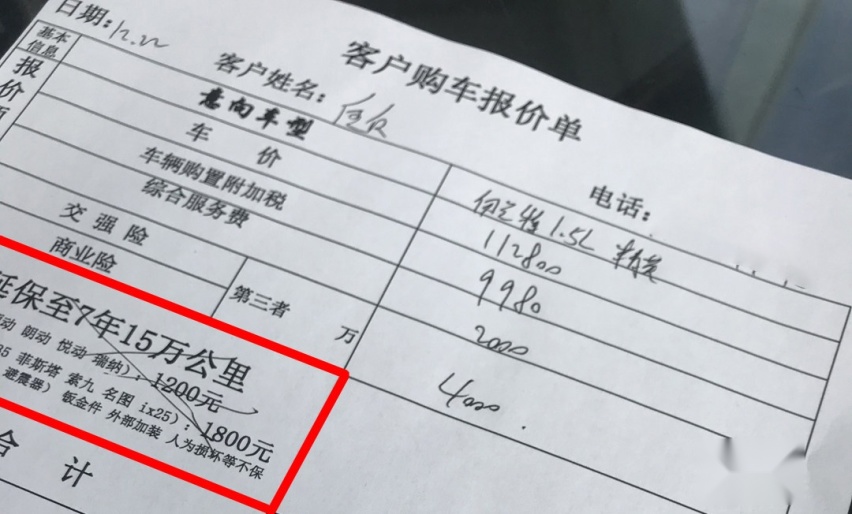 客户购车报价单
日期:12.22
客户姓名:
电话:
基本信息
意向车型
1.5L
报价
车 价
112800
车辆购置附加税
9980
综合服务费
2000
交强险
4000.
商业险
第三者 万
延保至7年15万公里
动 朗动 悦动 瑞纳):1200元
35 菲斯塔 索九 名图 ix25):1800元
避震器) 钣金件 外部加装 人为损坏等不保
合 计